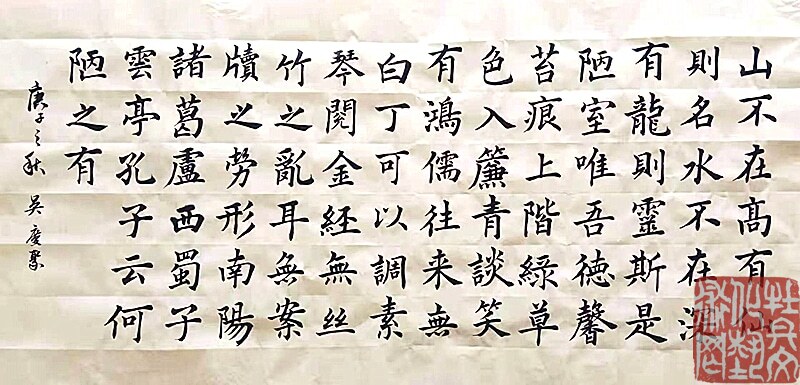 山不在髙有仙
則名水不在深
有龍則靈斯是
陋室唯吾德馨
苔痕上階綠草
色入簾青談笑
有鴻儒往来無
白丁可以調素
琴閱金経無丝
竹之亂耳無案
牘之勞形南陽
諸葛盧西蜀子
雲亭孔子云何
陋之有
庚子之秋 吴慶聚